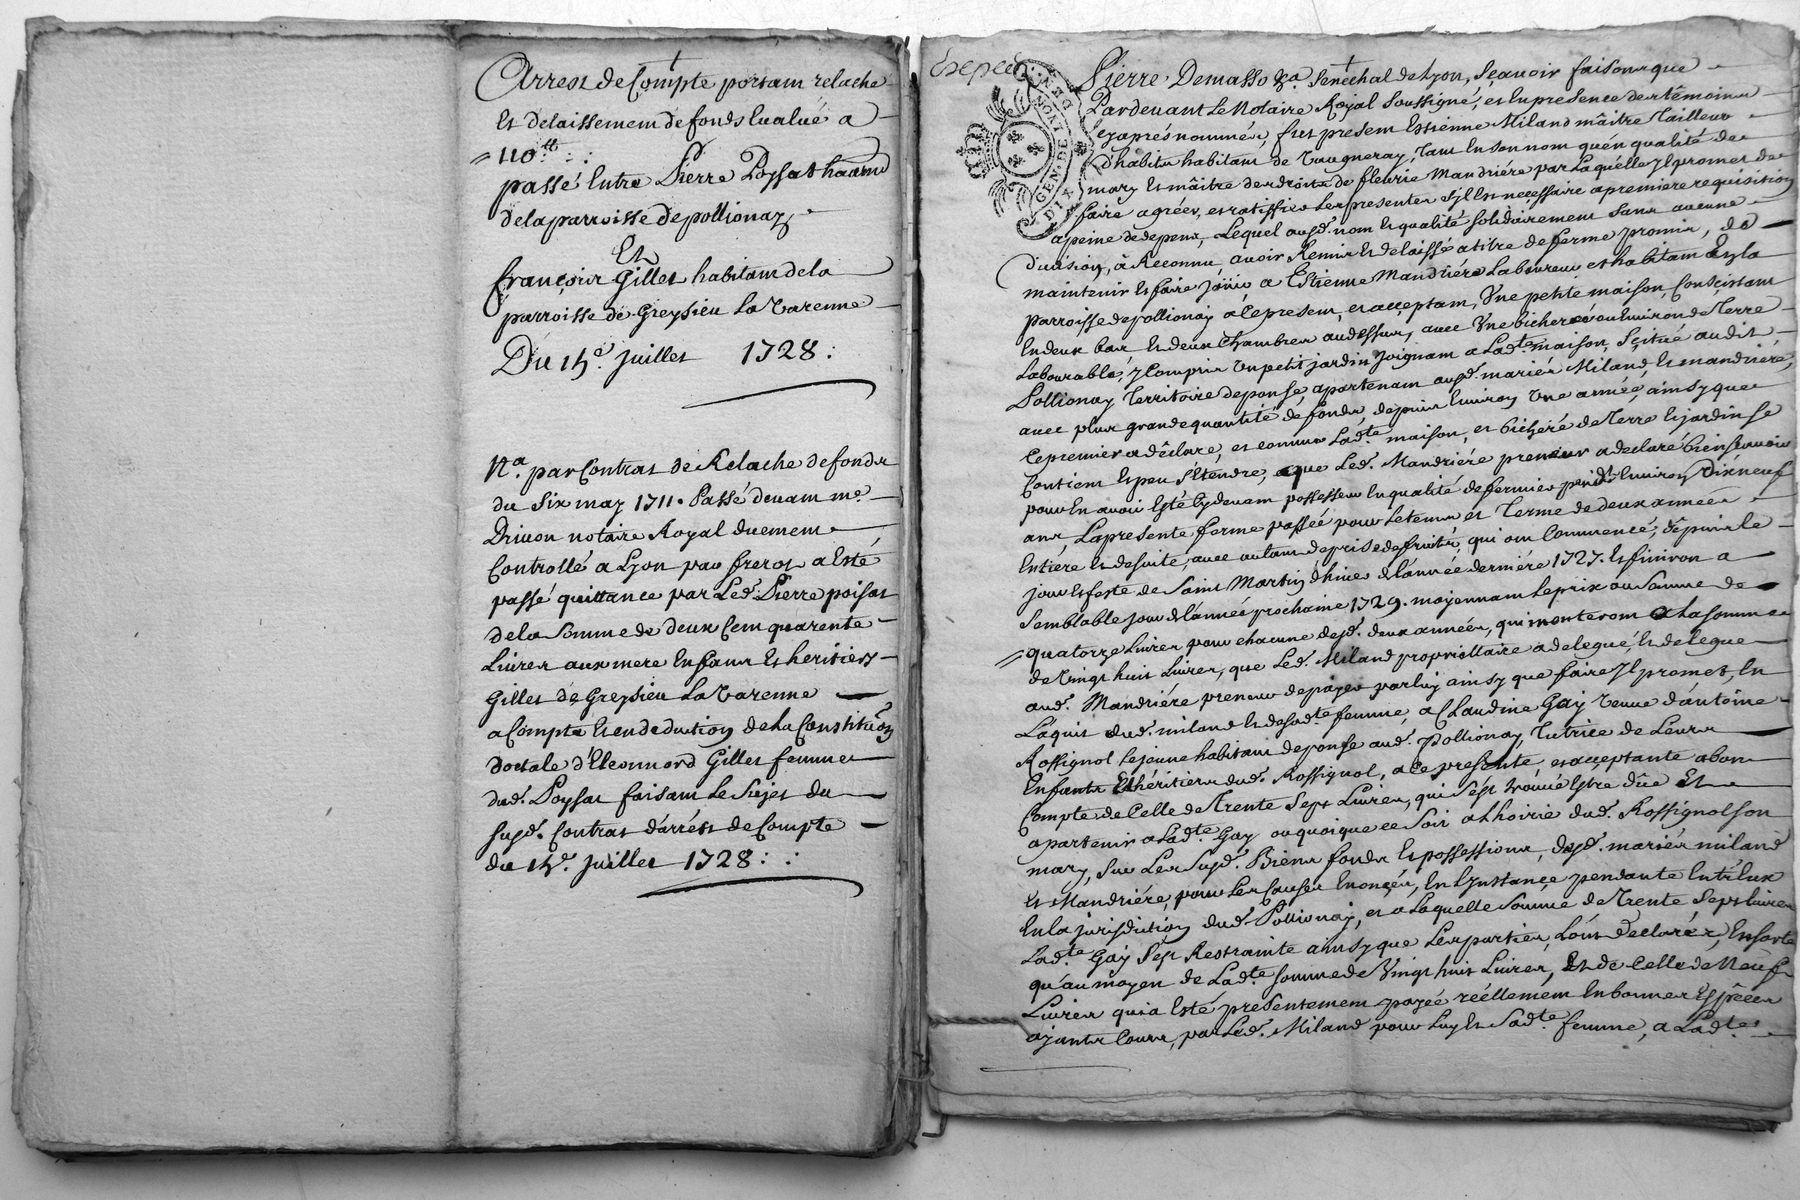 Arrest de Compte portant relache
Et delaissement de fonds Evalué a
110tt.
passé Entre Pierre Poysat
de la parroisse de pollionay
Et
françois Gillet habitant de la
parroisse de Greysieu La Varenne
Du 15e. Juillet 1728:
Na. par Contrat de Relache de fonds
du Six may 1711. Passé devant me.
Drivon notaire Royal duement
Controllé a Lyon par freros a Esté
passé quittance par Led. Pierre poisat
de la Somme de deux Cent quarente
Livres aux mere Enfans Et heritiers
Gillet de Greysieu La Varenne
a Compte Et en deduction de la Constituon
doctale d'Eleonnord Gillet femme
dud. Poysat faisant Le Sujet du
susd. Contrat d'arrest de Compte
du 15e. Juillet 1728:
Pierre Demasso &a. Senechal de Lyon, Sçavoir faisons que
Pardevant Le Notaire Royal Soussigné, et En presence des têmoins
Cy aprés nommés, fut present Estienne Miland mâitre Tailleur
d'habits habitant de Vaugneray, Tant En son nom qu'en qualité de
mary Et mâitre des droits de fleurie Mandriére par Laquélle Jl promet de
faire agréer, et ratiffier Les presentes s'Jl Est neçessaire a premiere requisition
a peine de depens, Lequel ausd. nom Et qualité Solidairement Sans aucune
division, â Reconnu avoir Remis Et delaissé a titre de ferme promis, de
maintenir Et faire Jöüir a Estienne Mandriére Laboureur et habitant En la
Parroisse de pollionay a Ce present, et acceptant, Vne petite maison, Consistant
En deux bas, Et deux Chambres au dessus, avec Vne bicherée ou Environ de Terre
Labourable, y Compris Vn petit jardin Joignant a Ladte. maison, Sçitué audit
Pollionay Territoire de ponse, apartenant ausd. mariés Miland, Et mandriére,
avec plus grande quantité de fonds, depuis Environ Vne année, ainsy que
Ce premier a dêclaré, et comme Ladte. maison, et bichéré de Terre Et jardin se
Contient Et peu s'êtendre, que Led. Mandriére preneur a declaré bien Sçavoir
pour En avoir Esté Cy devant possesseur En qualité de fermier pendt. Environ Dixneuf
ans, La presente ferme passée pour Le tems et Terme de deux années
Entiére Et de suite, avec autant de prise de fruits, qui ont Commencé, dêpuis le
jour Et feste de Saint Martin d'hiver de l'année derniére 1727. Et finiront a
Semblable jour de l'année prochaine 1729. moyennant Le prix ou Somme de
quatorze Livres pour chacune desd. deux années, qui monteront a La somme
de Vingt huit Livres, que Led. Miland propriettaire a delegué, Et delegue
aud. Mandriére preneur de payer par luy ainsy que faire Jl promet, En
L'aquit dud. miland Et de sadte. femme, a Claudine Gay Veuve d'antoine
Rossignol Le jeune habitant de ponse aud. Pollionay, Tutrice de Leurs
Enfants Et héritiers dud. Rossignol, a ce presente et acceptante a bon
Compte de Celle de Trente Sept Livres, qui s'est trouvé Estre dûe Et
apartenir a Ladte. Gay ou quoique ce Soit a L'hoirie dud. Rossignol son
mary, Sur Les susd. Biens fonds Et possessions, desd. mariés miland
Et Mandriére, pour Les Causes Enonçés, En L'Jnstance pendante Entr'Eux
En la jurisdiction dud. Pollionay, et a Laquelle Somme de Trente Sept Livres
Ladte. Gay s'est Restrainte ainsy que Les parties, L'ont declarés, En sorte
qu'au moyen de Ladte. somme de Vingt huit Livres, Et de Celle de Neuf
Livres qui a Esté presentement payée réellement En bonnes Espêces
ayants Cours, par Led. Miland pour Luy Et Sadte. femme, a Ladte.
GEN. DE LYON
DIX DEN.